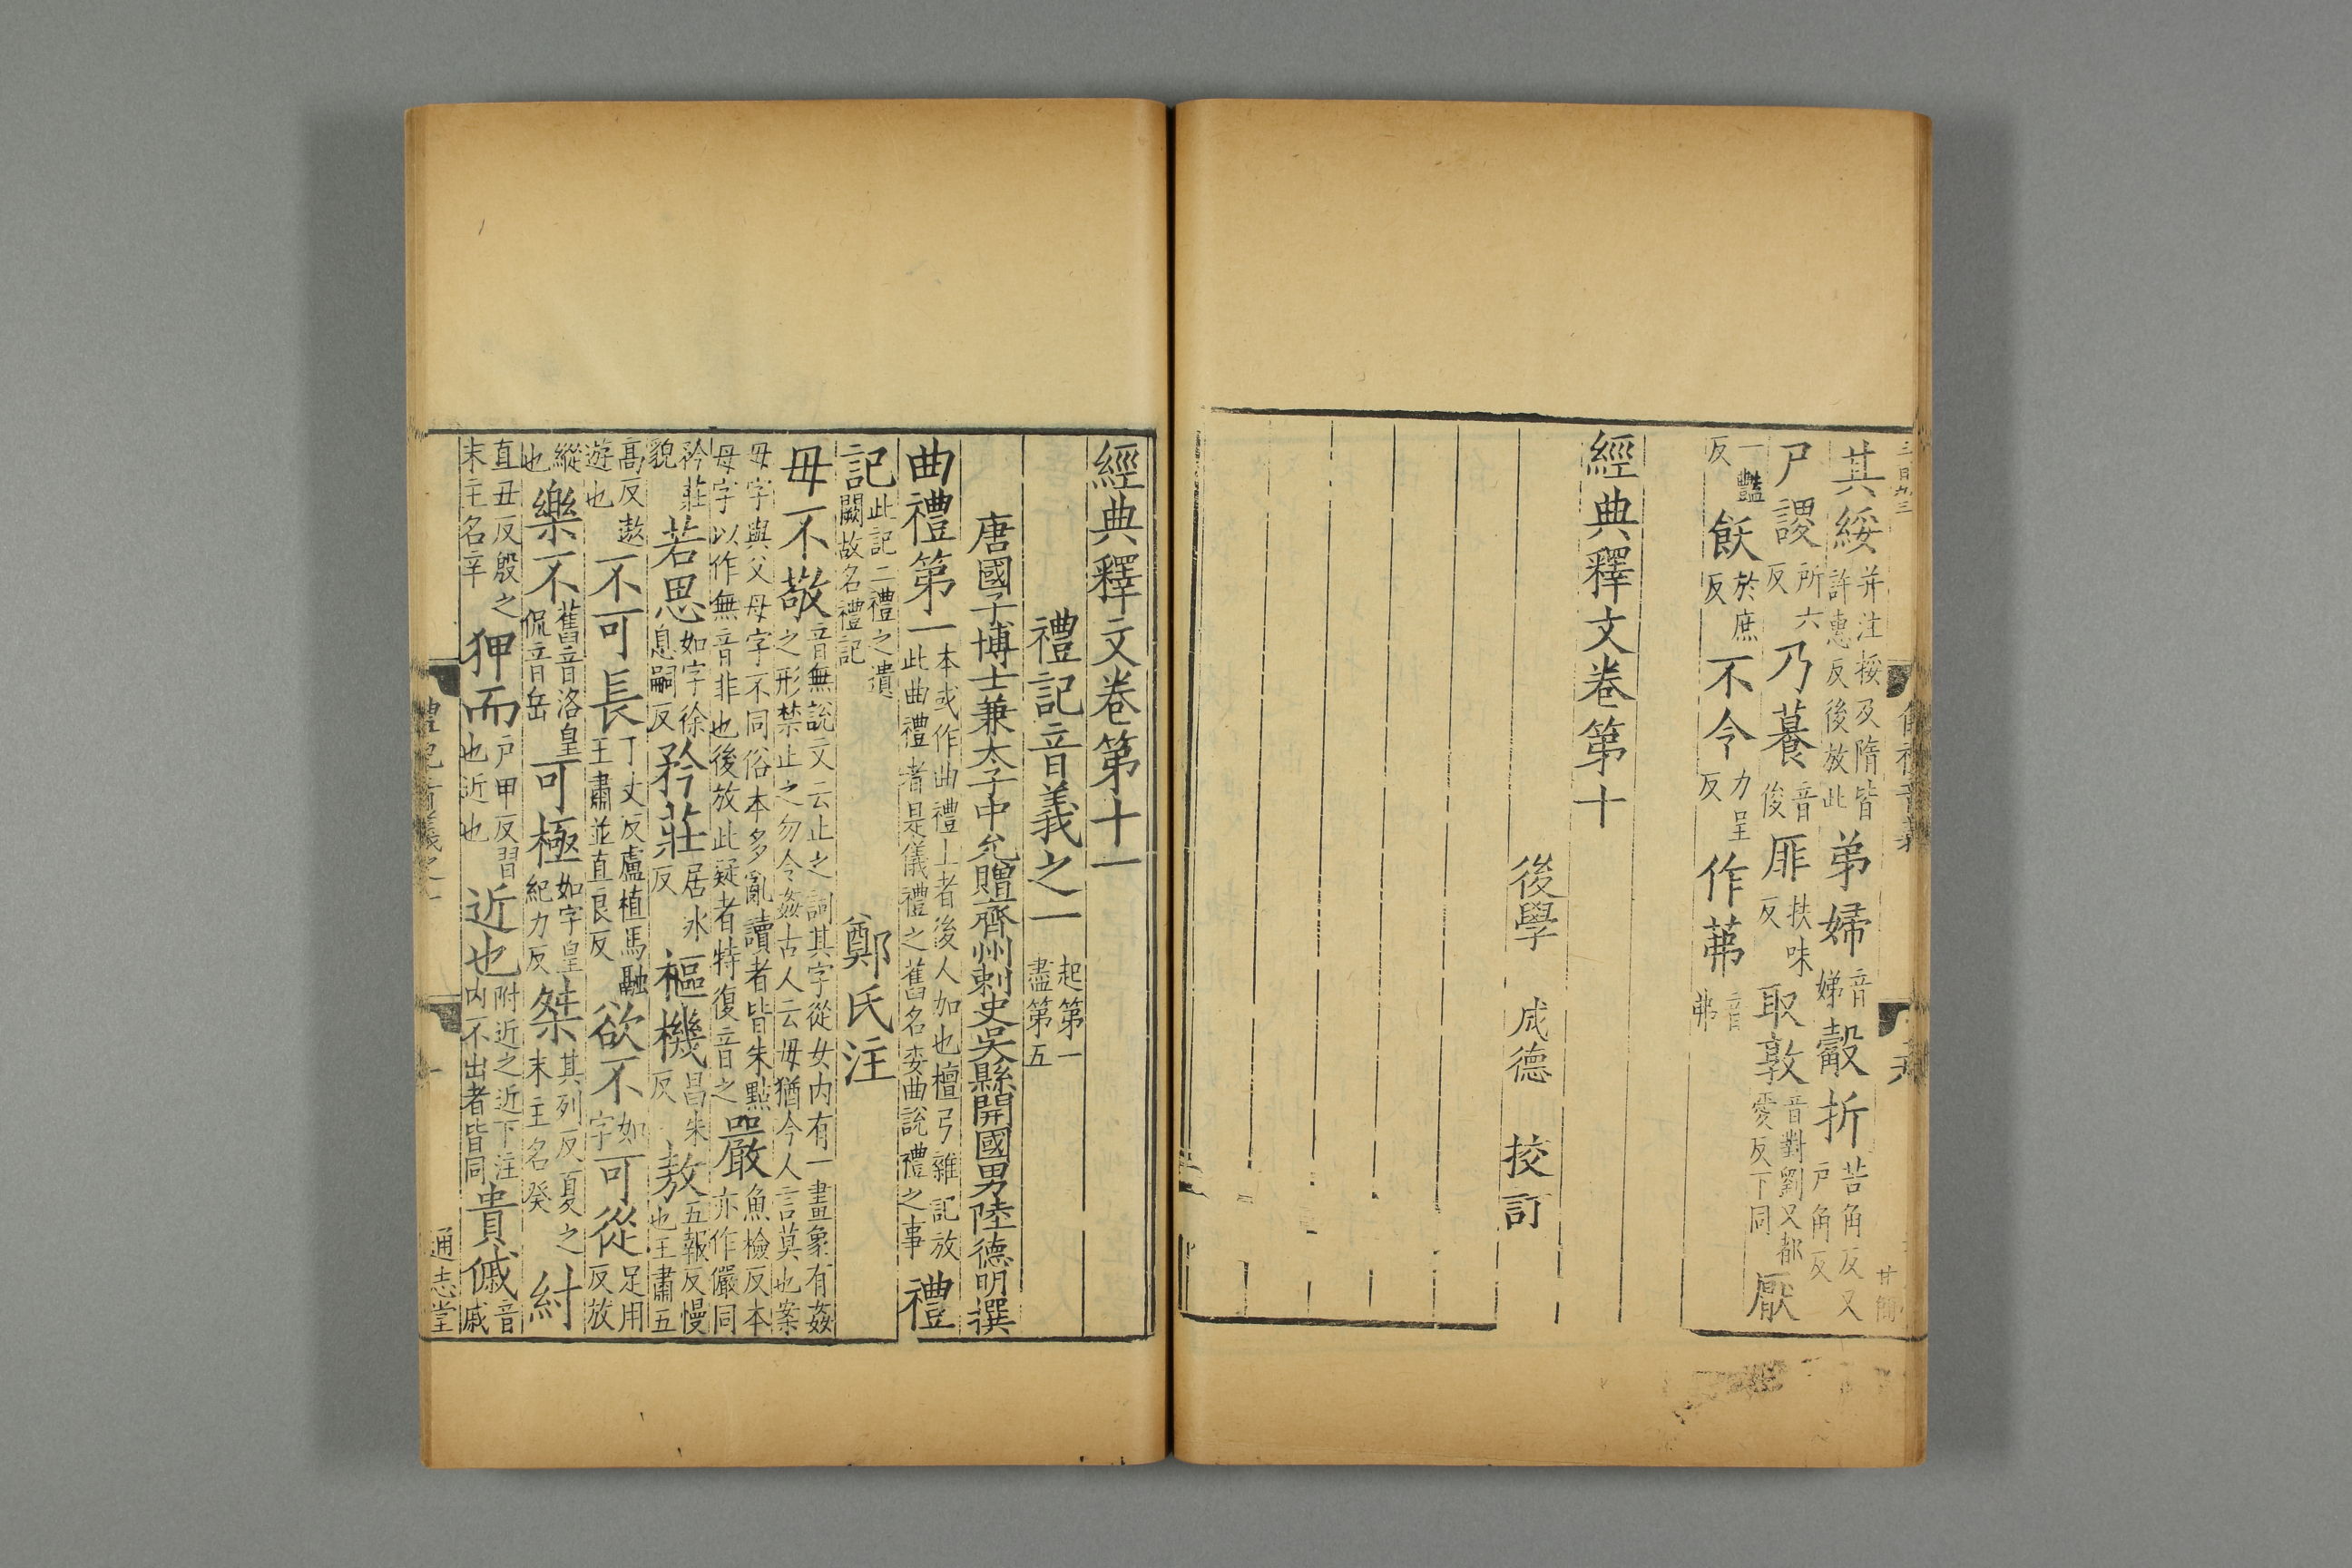 其綏并注挼及隋皆許恚反後放此弟婦音娣觳折苦角反又戶角反
尸謖所六反乃養音俊厞扶味反取敦音對劉又都愛反下同厭
一豔反飫於庶反不令力呈反作茀音弗
經典釋文卷第十
後學 成德 挍訂
經典釋文卷第十一
禮記音義之一起第一盡第五
唐國子博士兼太子中允贈齊州刺史吳縣開國男陸德明撰
曲禮第一本或作曲禮上者後人加也檀弓雜記放此曲禮者是儀禮之舊名委曲說禮之事禮
記此記二禮之遺闕故名禮記 鄭氏注
毋不敬音無說文云止之詞其字從女内有一畫象有姦之形禁止之勿令姦古人云毋猶今人言莫也案
毋字與父母字不同俗本多亂讀者皆朱點母字以作無音非也後放此疑者特復音之嚴魚檢反本亦作儼同
矜莊貌若思如字徐息嗣反矜莊居冰反樞機昌朱反敖五報反慢也王肅五
高反遨遊也不可長丁丈反盧植馬融王肅並直良反欲不如字可從足用反放
縱也樂不舊音洛皇侃音岳可極如字皇紀力反桀其列反夏之末主名癸紂
直丑反殷之末主名辛狎而戶甲反習也近也近也附近之近下注内不出者皆同貴戚音戚
禮記音義之一
一
通志堂